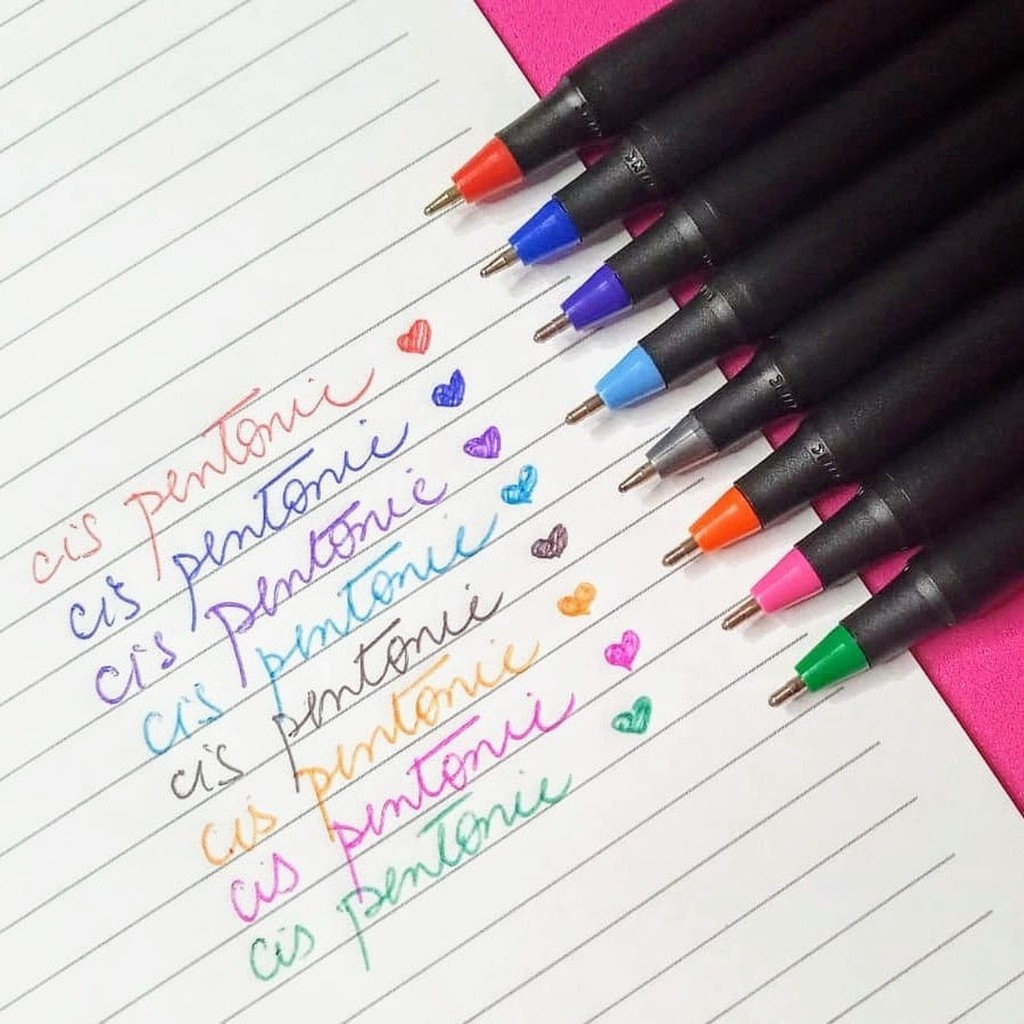 cis pentonic
cis pentonic
cis pentonic
cis pentonic
cis pentonic
cis pentonic
cis pentonic
cis pentonic